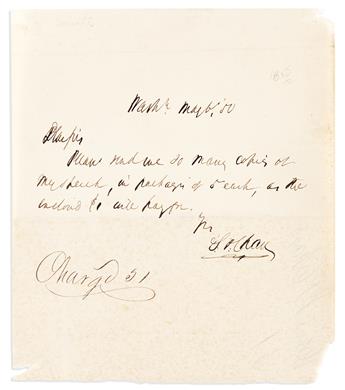 Washn May 6, 50
Dear Sir
Please send me so many copies of
my speech, in packages of 5 each, as the
enclosd $1 will pay for.
Yrs
S P Chase
Charg'd 51